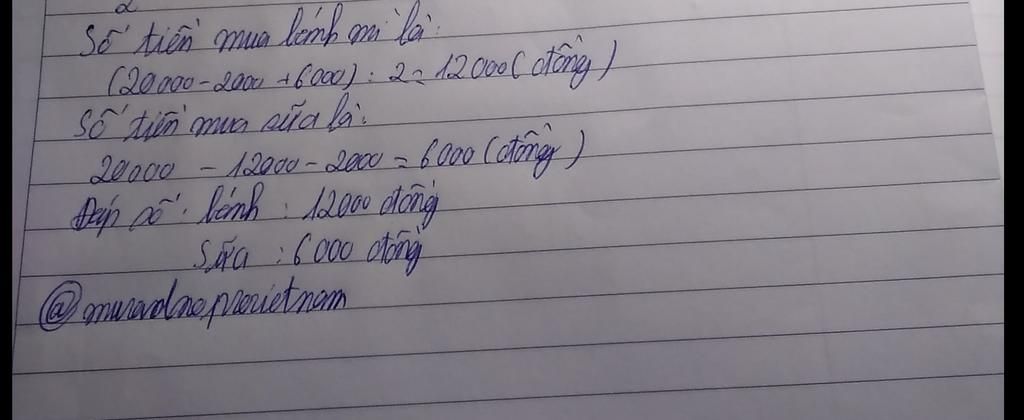 Số tiền mua bánh mì là:
(20000 - 2000 + 6000) : 2 = 12000 (đồng)
Số tiền mua sữa là:
20000 - 12000 - 2000 = 6000 (đồng)
Đáp số: bánh : 12000 đồng
Sữa : 6000 đồng